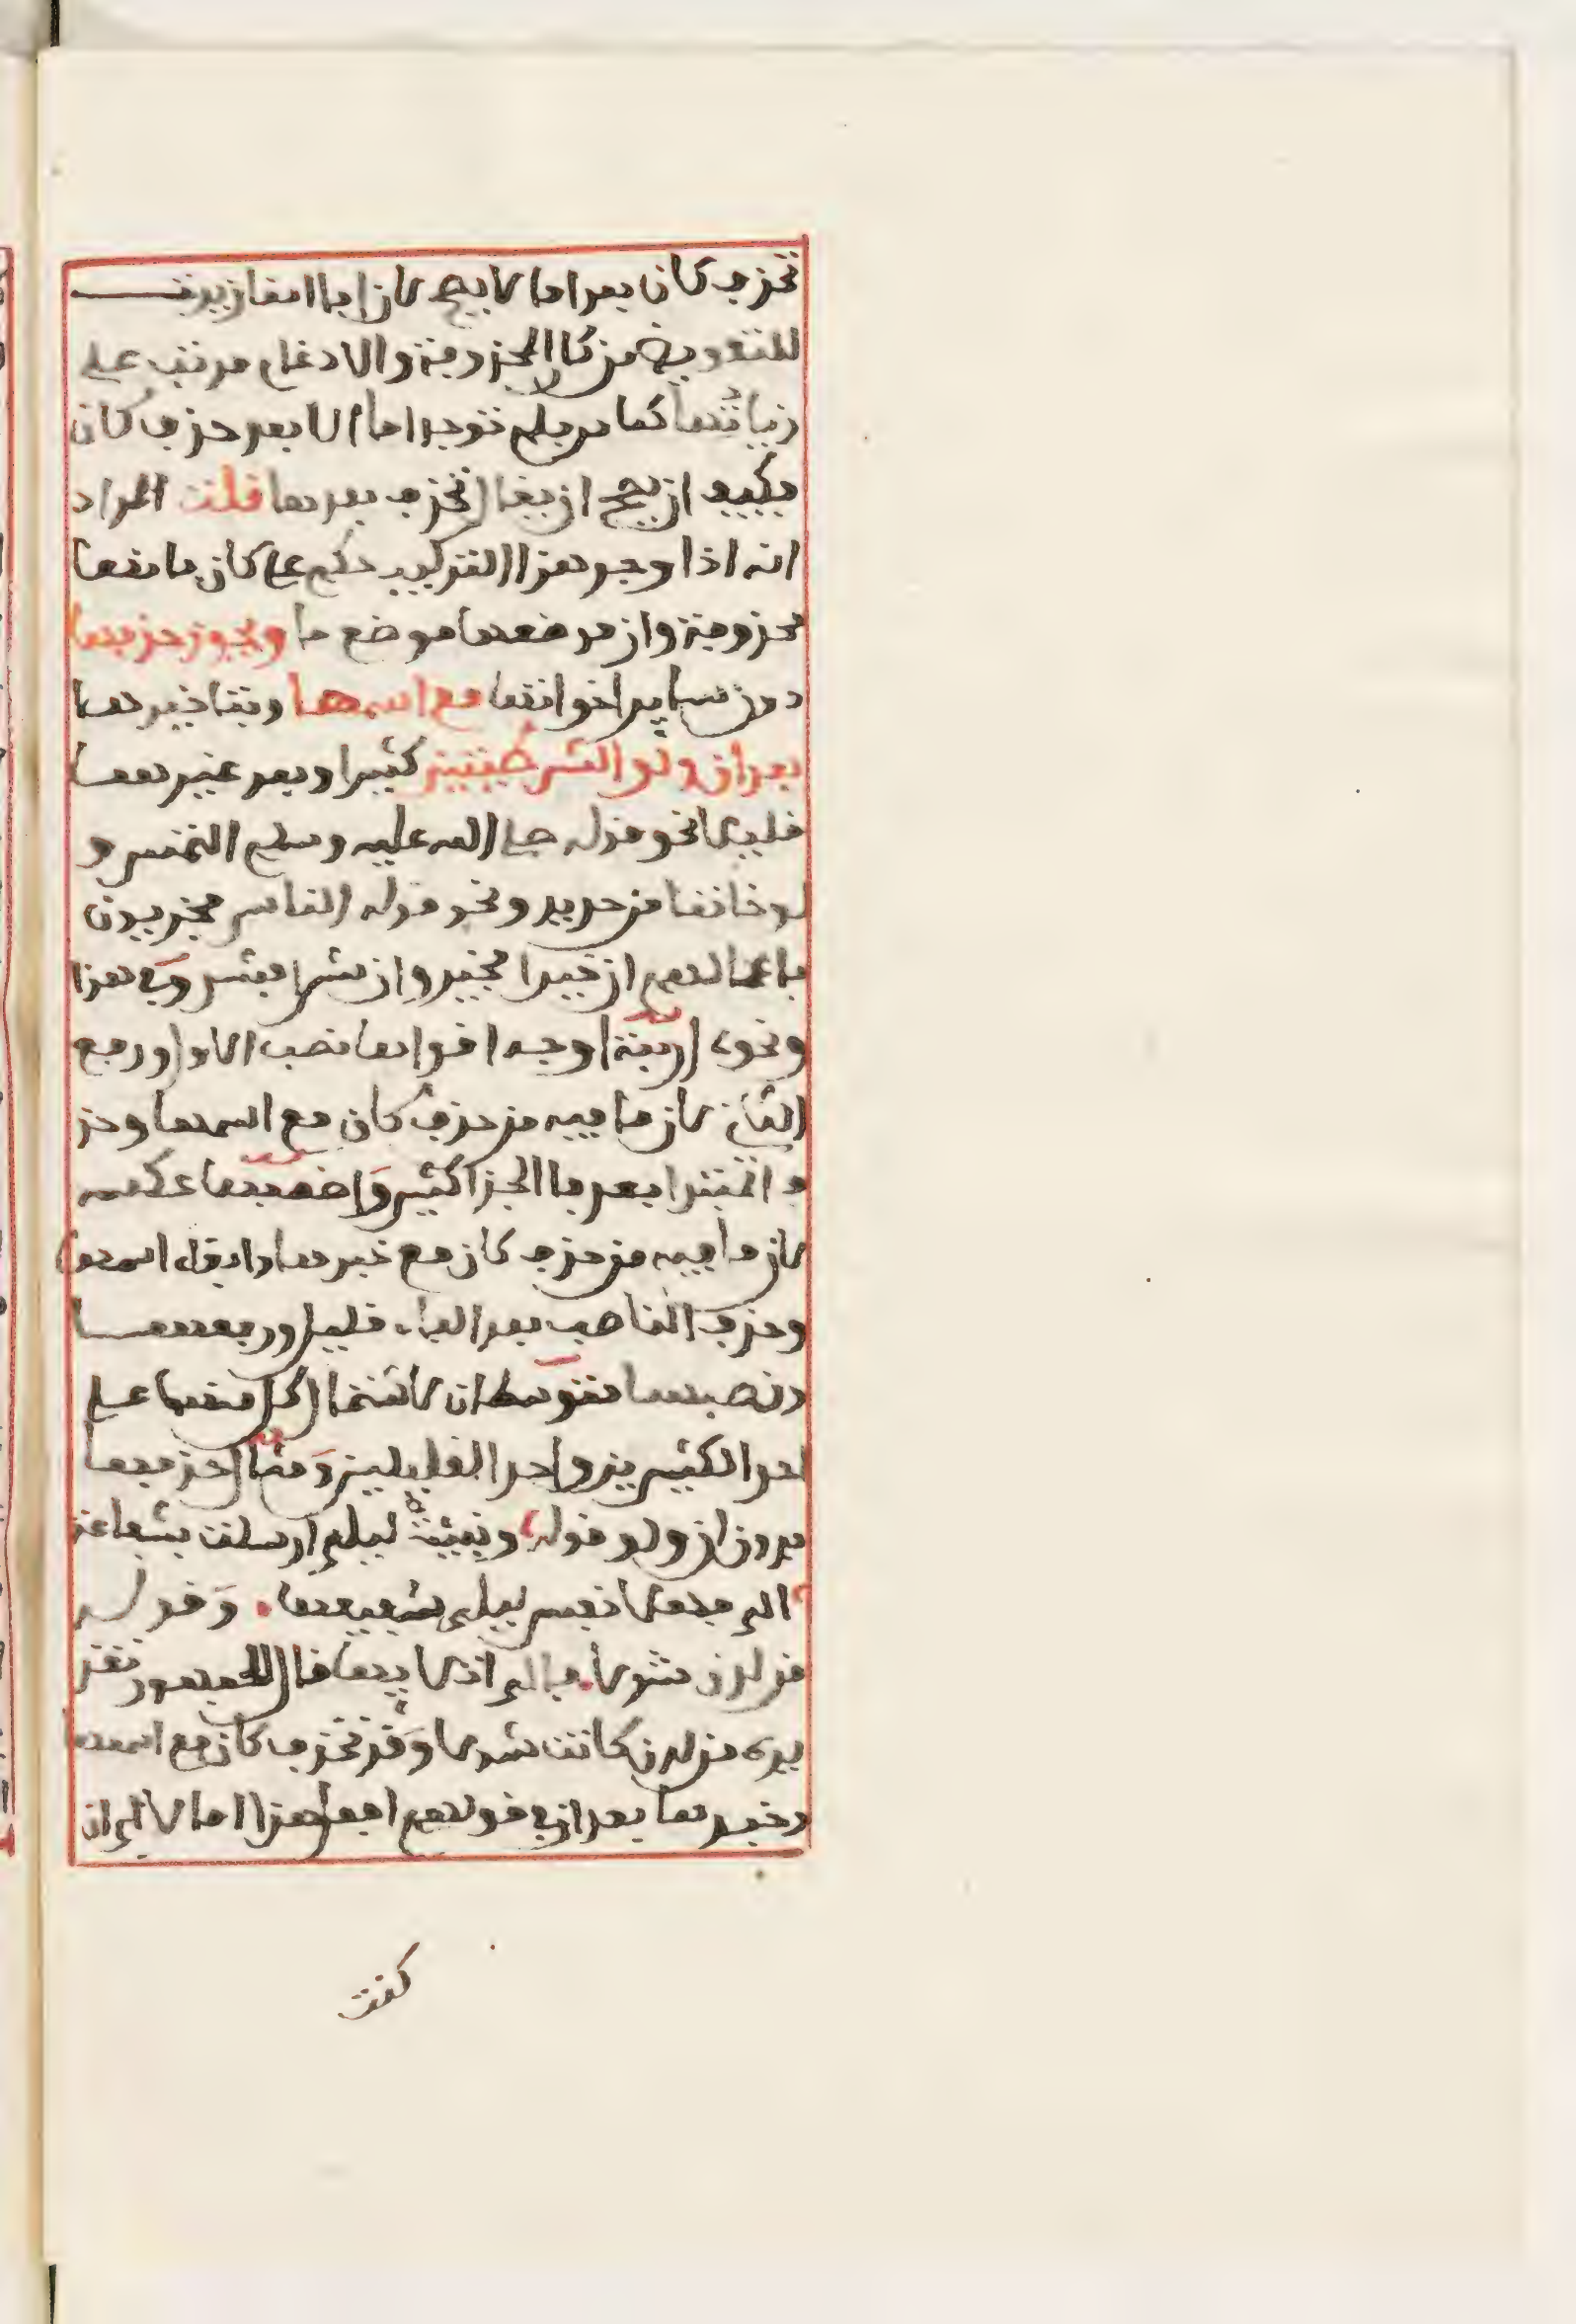 تحذف كان بعد اما لا يصح لان اما انما زيدت
للتعويض من كان المحذوفة والادغام مرتب على
زيادتها كما مر فلم توجد اما الا بعد حذف كان
فكيف ان يصح ان يقال تحذف بعدها قلت المراد
انه اذا وجد هذا التركيب حكم على كان بانها
محذوفة وان موضعها موضع ما ويجوز حذفها
دون ساير اخواتها مع اسمها وبقا خبرها
بعد ان ولو الشرطيتين كثيرا وبعد غيرهما
قليلا نحو قوله صلى الله عليه وسلم التمس و
لو خاتما من حديد ونحو قوله الناس مجزيون
باعمالهم ان خيرا فخير وان شرا فشر وفي هذا
ونحوه اربعة اوجه اقواها نصب الاول ورفع
الثاني لان ما فيه من حذف كان مع اسمها وحذ
ف المبتدا بعد فا الجزا كثير واضعفها عكسه
لان ما فيه من حذف كان مع خبرها وابقا اسمها
وحذف الناصب بعد الفاء قليل ورفعهما
ونصبهما متوسطان لاشتمال كل منهما على
احد الكثيرين واحد القليلين ومثال حذفها
بدون ان ولو قوله ونبئت ليلى ارسلت بشفاعة
الي فهلا نفس ليلى شفيعها. وقوله
من لدن شولا. فالى اتلايها قال الجمهور تقد
يره من لدن كانت شولا وقد تحذف كان مع اسمها
وخبرها بعد ان في قولهم افعل هذا اما لا اي ان
كنت